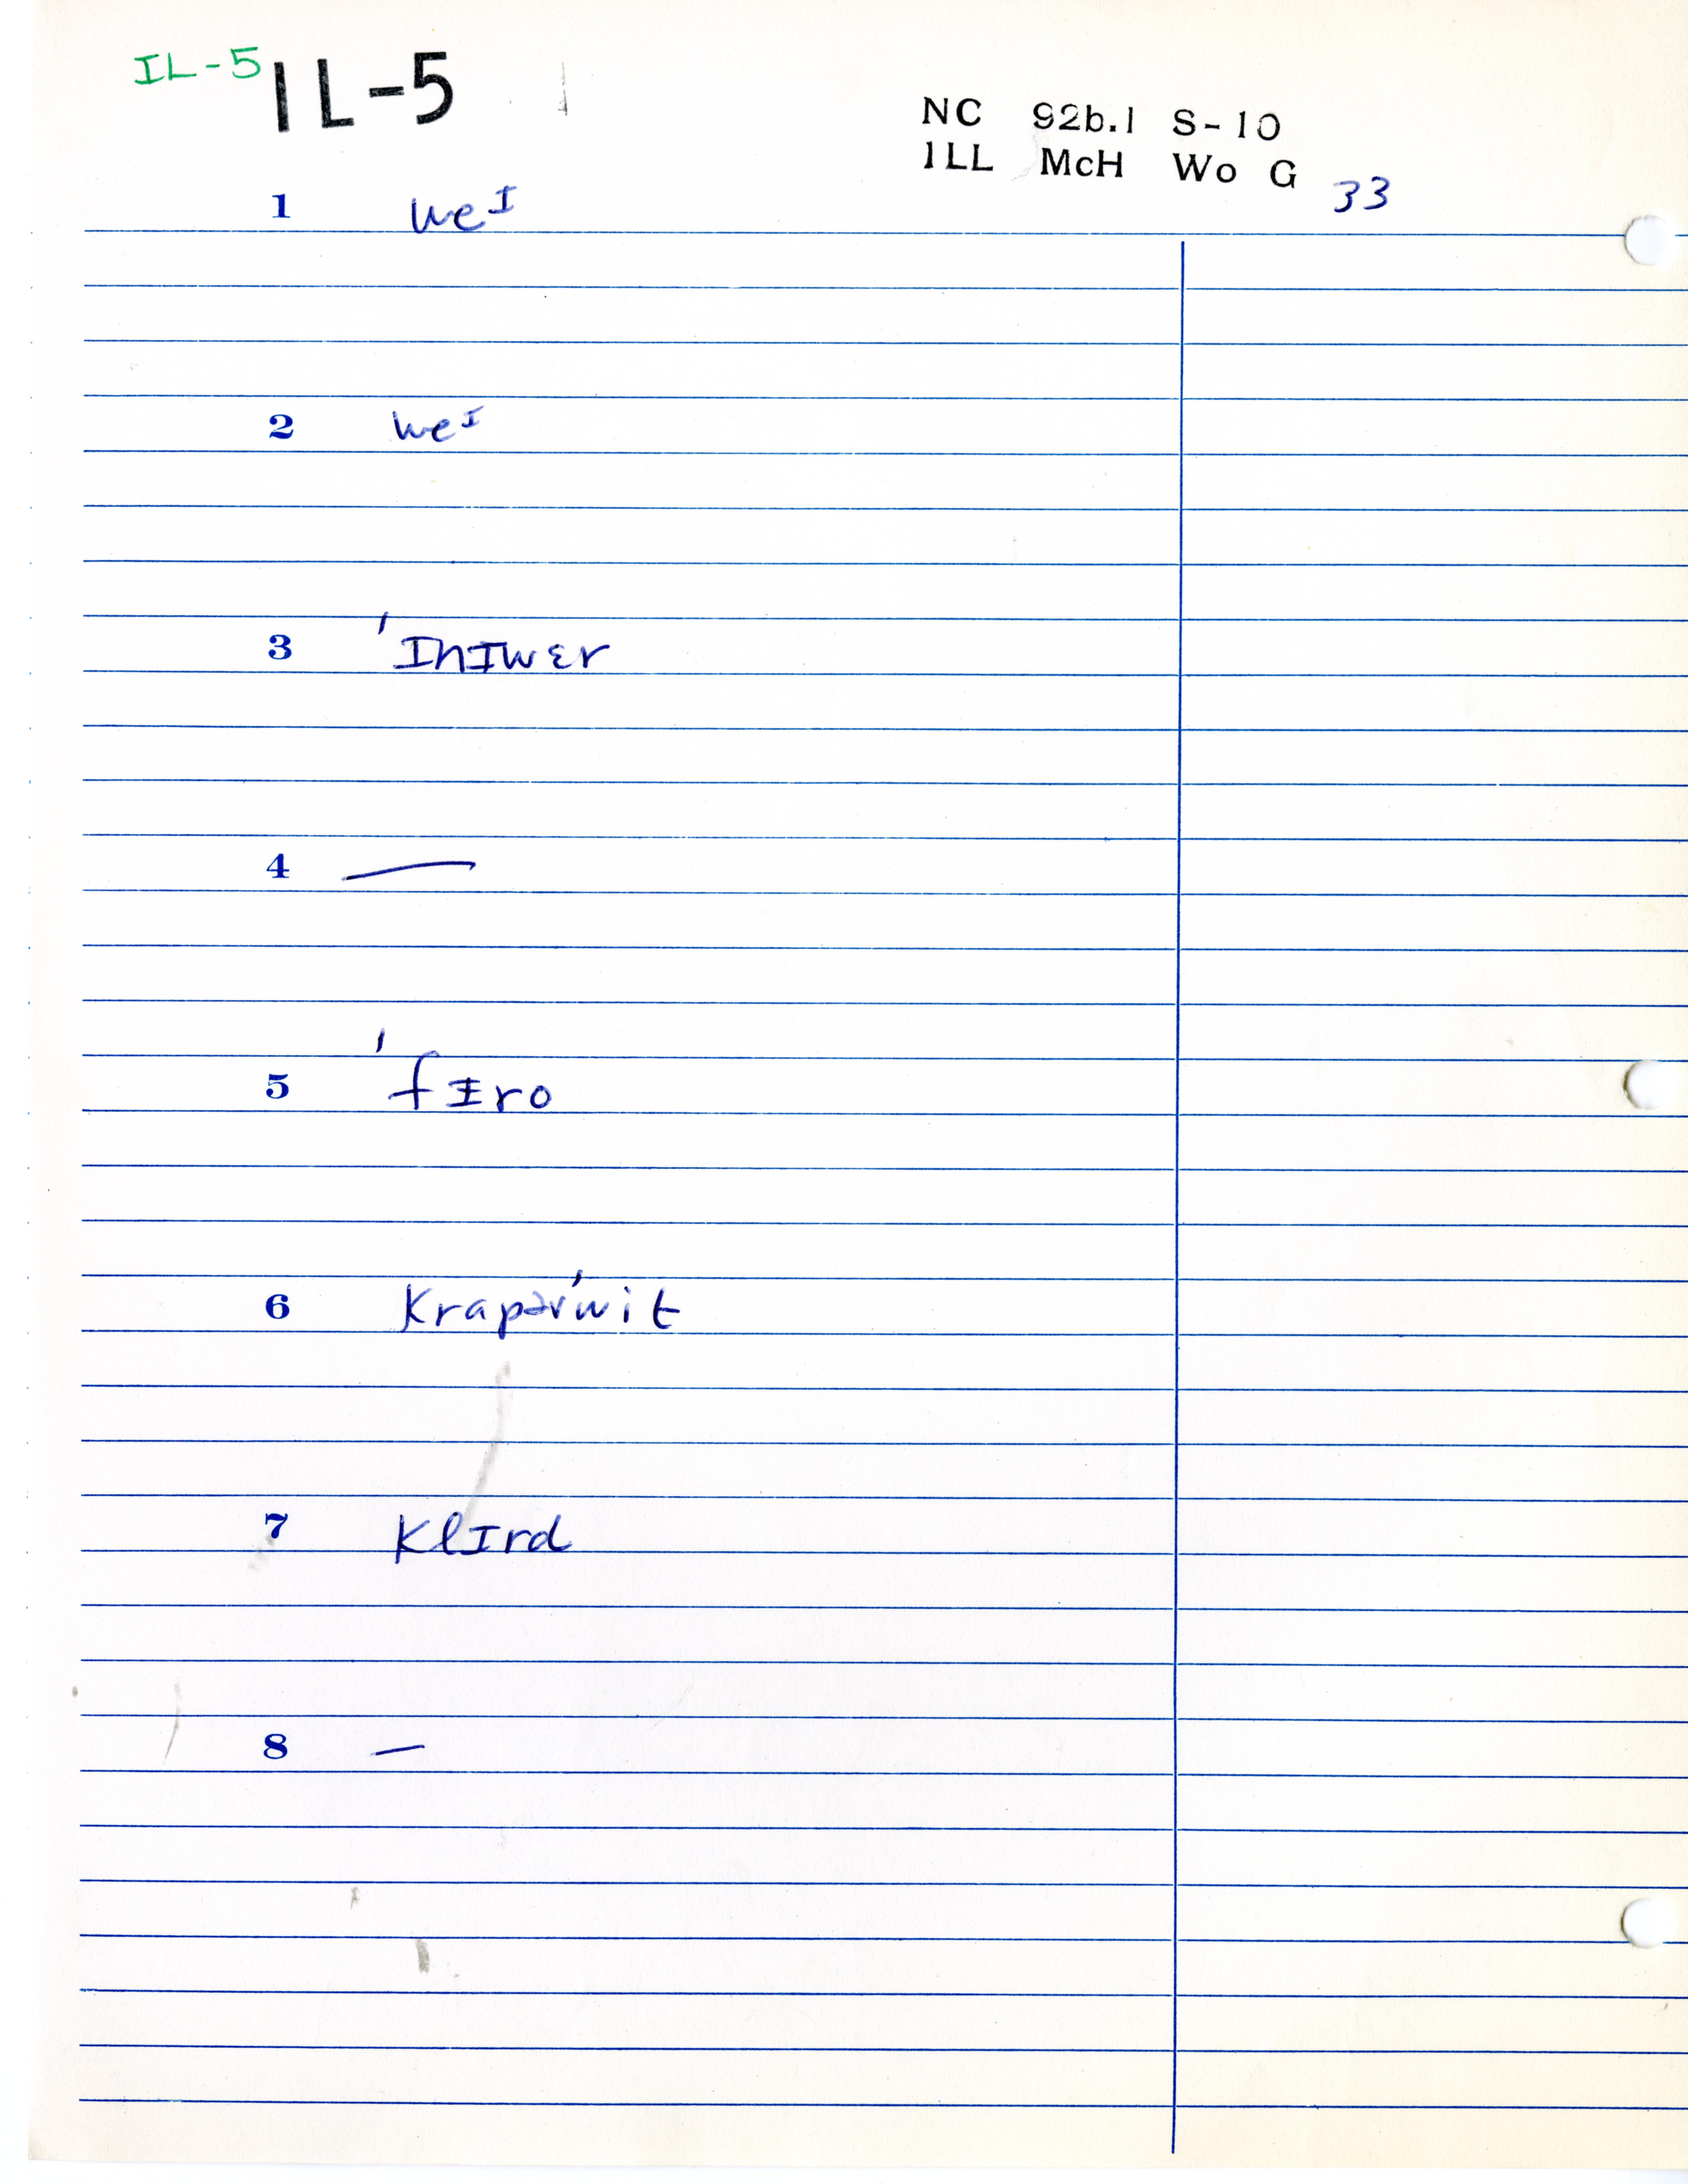 IL-5 IL-5
NC 92b.1 S-10
ILL McH Wo G 33
1 weᴵ
2 weᴵ
3 'InIwɛr
4 —
5 'fɪro
6 krapər'wit
7 klIrd
8 —